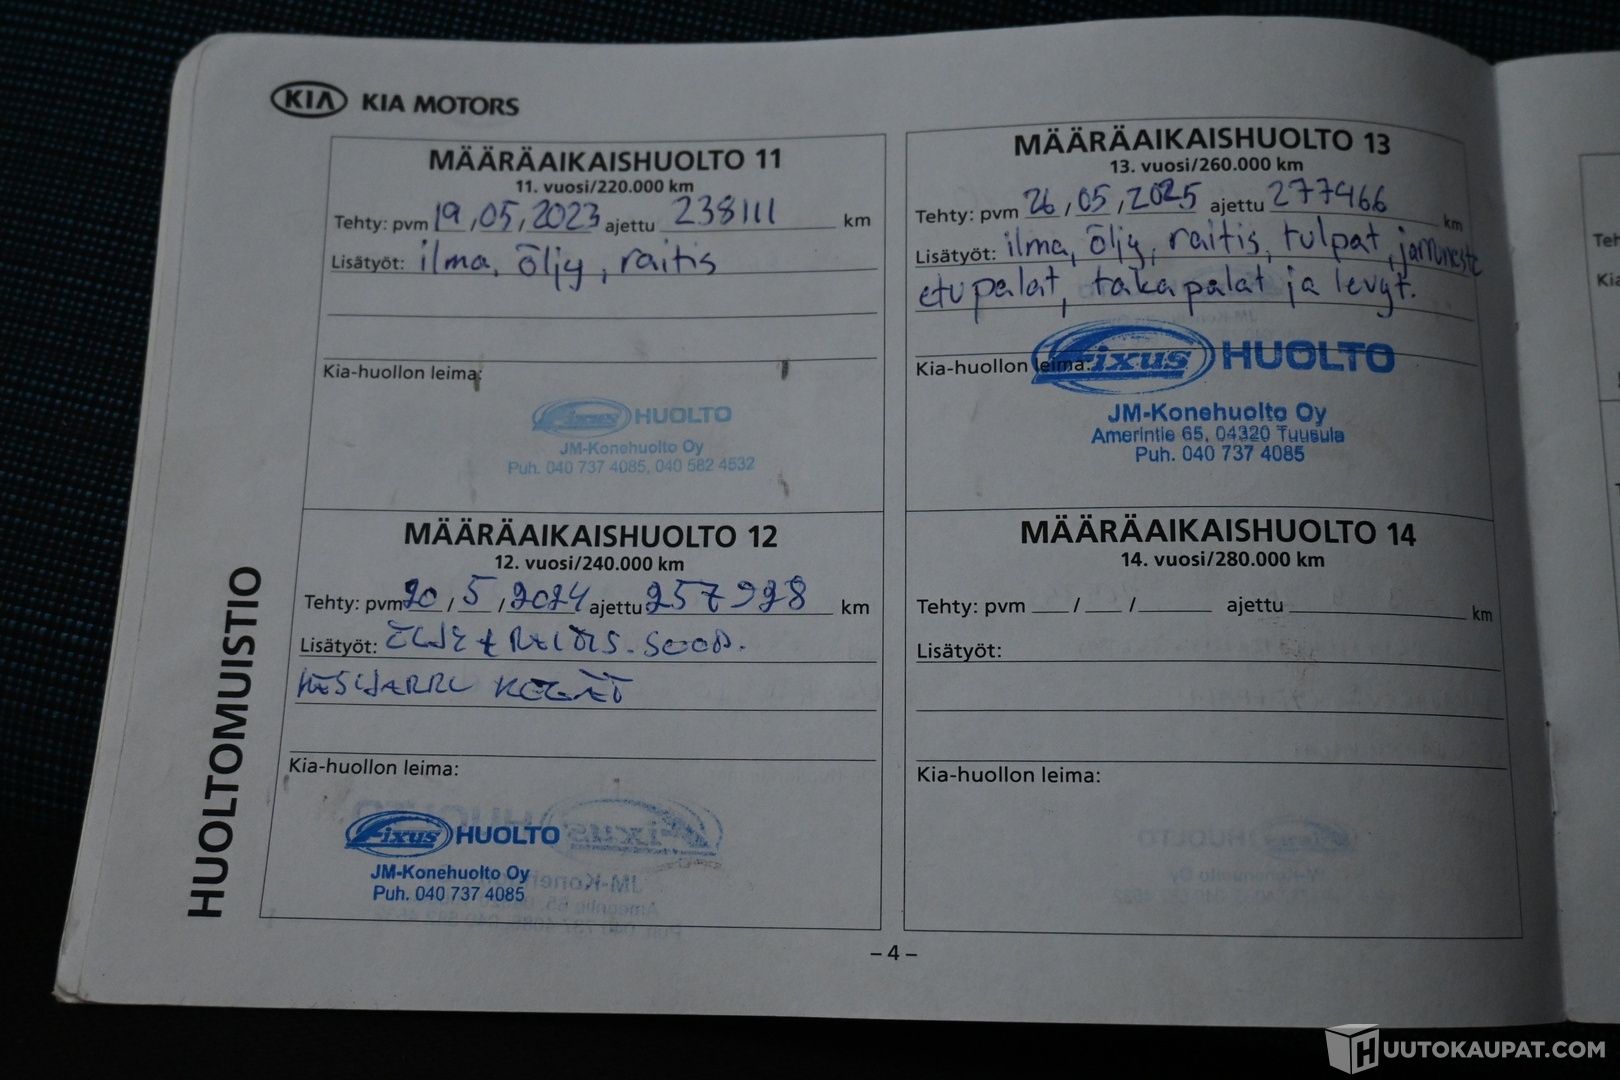 KIA KIA MOTORS
MÄÄRÄAIKAISHUOLTO 11
11. vuosi/220.000 km
Tehty: pvm 19 / 05 / 2023 ajettu 238111 km
Lisätyöt: ilma, öljy, raitis
Kia-huollon leima:
Fixus HUOLTO
JM-Konehuolto Oy
Puh. 040 737 4085, 040 582 4532
MÄÄRÄAIKAISHUOLTO 12
12. vuosi/240.000 km
Tehty: pvm 20 / 5 / 2024 ajettu 257928 km
Lisätyöt: ÖLJY + RAITIS.
Kia-huollon leima:
Fixus HUOLTO
JM-Konehuolto Oy
Puh. 040 737 4085
MÄÄRÄAIKAISHUOLTO 13
13. vuosi/260.000 km
Tehty: pvm 26 / 05 / 2025 ajettu 277466 km
Lisätyöt: ilma, öljy, raitis, tulpat, jarruneste
etupalat, takapalat ja levyt.
Kia-huollon leima:
Fixus HUOLTO
JM-Konehuolto Oy
Amerintie 65, 04320 Tuusula
Puh. 040 737 4085
MÄÄRÄAIKAISHUOLTO 14
14. vuosi/280.000 km
Tehty: pvm ___ / ___ / ______ ajettu ______ km
Lisätyöt:
Kia-huollon leima:
HUOLTOMUISTIO
– 4 –
HUUTOKAUPAT.COM